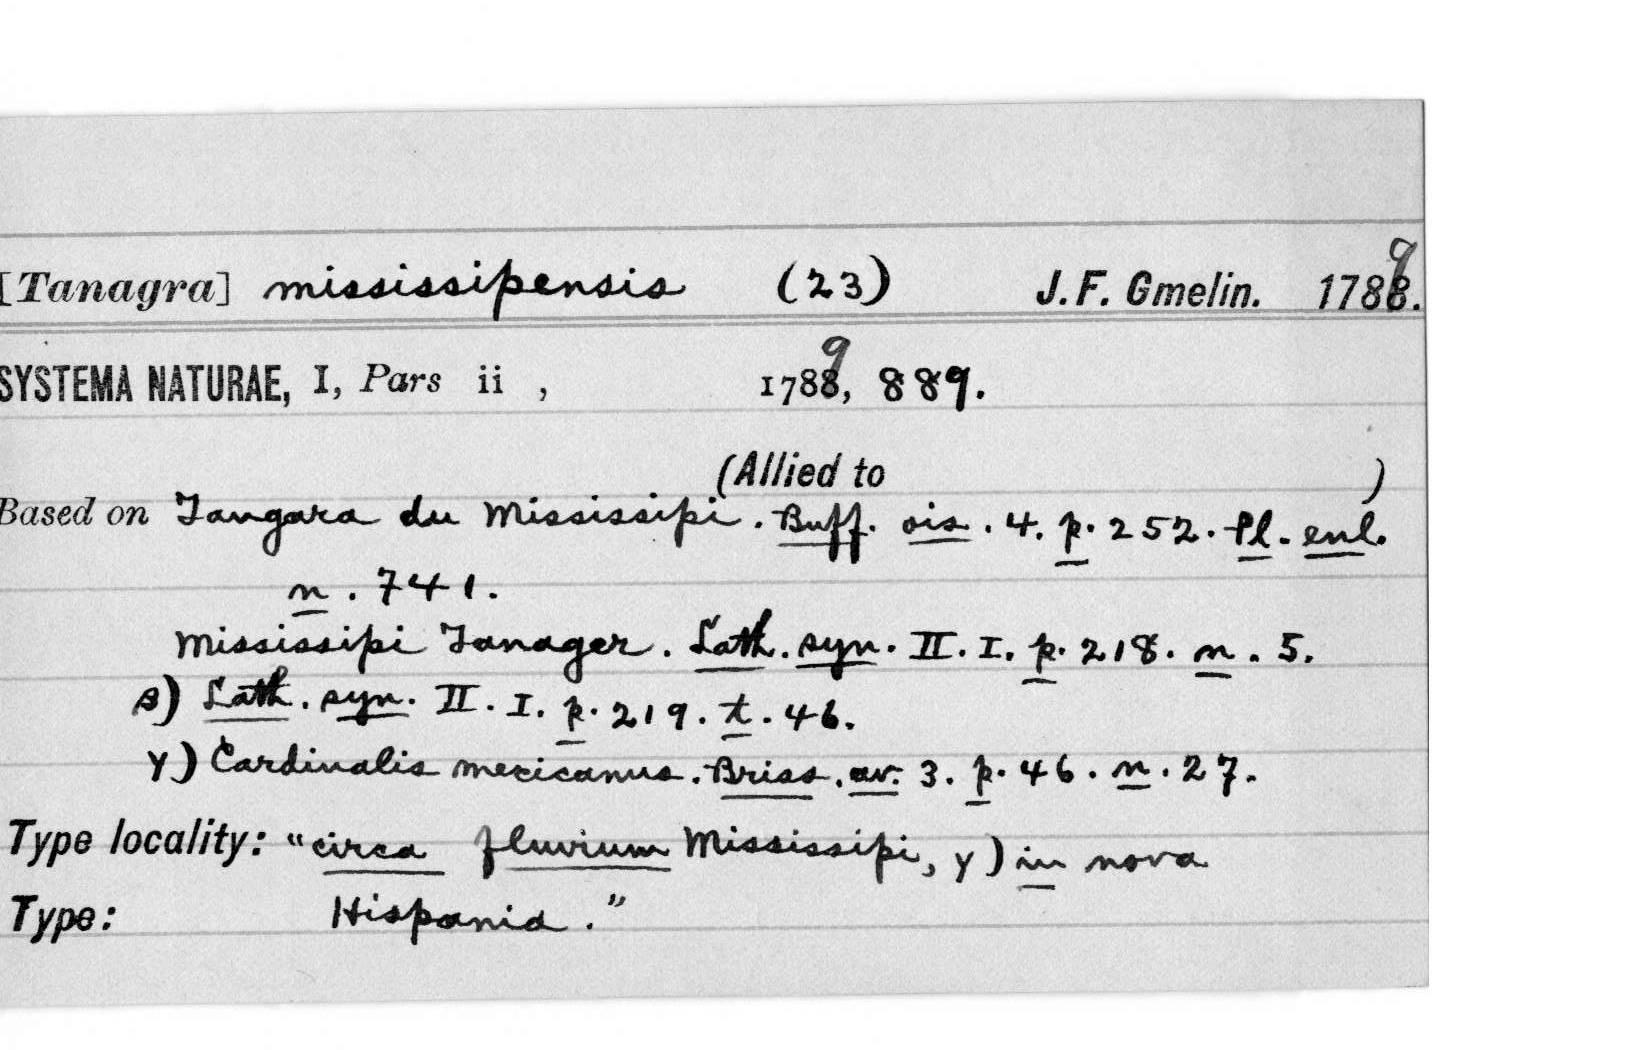 [Tanagra] mississipensis (23) J. F. Gmelin. 1789.
SYSTEMA NATURAE, I, Pars ii , 1789, 889.
(Allied to )
Based on Tangara du Mississipi. Buff. ois. 4. p. 252. Pl. enl.
n. 741.
Mississipi Tanager. Lath. syn. II. I. p. 218. n. 5.
β) Lath. syn. II. I. p. 219. t. 46.
γ) Cardinalis mexicanus. Briss. av. 3. p. 46. n. 27.
Type locality: "circa fluvium Mississipi, γ) in nova
Type: Hispania."